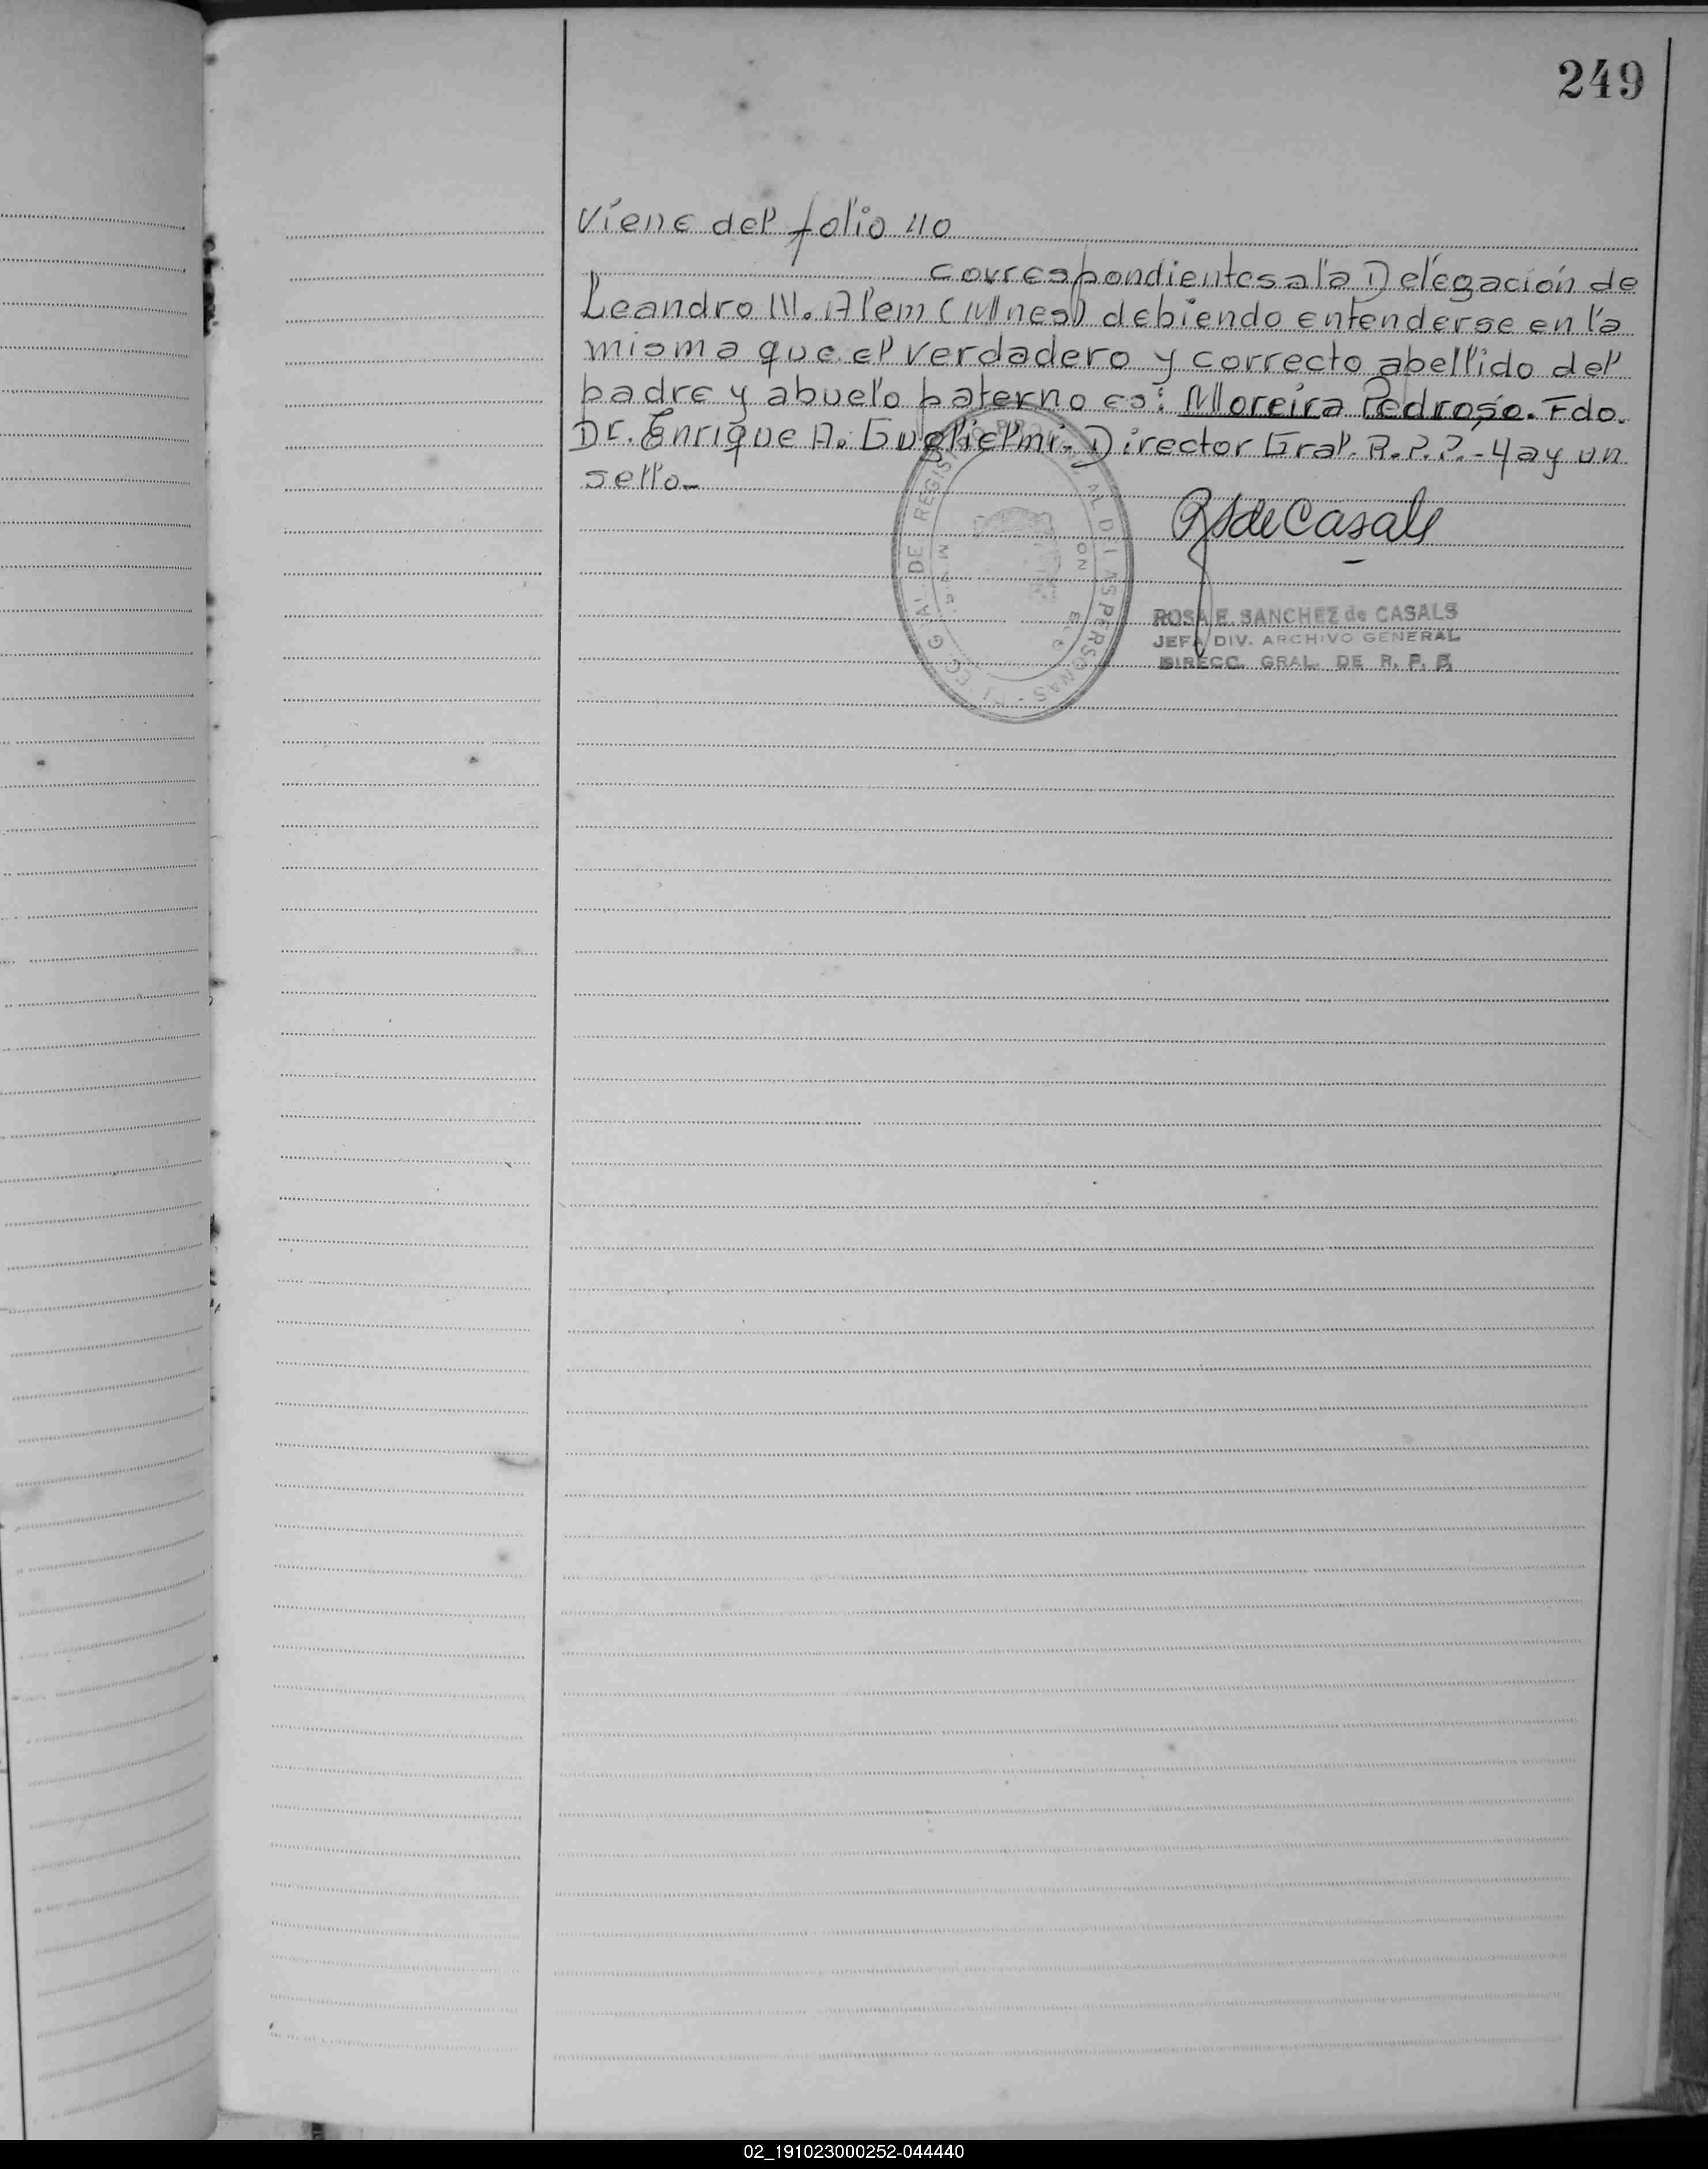 249
Viene del folio 110
correspondientes a la Delegación de
Leandro N. Alem (Mnes) debiendo entenderse en la
misma que el verdadero y correcto apellido del
padre y abuelo paterno es: Moreira Pedroso. Fdo.
Dr. Enrique A. Guglielmi. Director Gral. R.P.P.- Hay un
sello.-
RSdeCasals
ROSA E. SANCHEZ de CASALS
JEFA DIV. ARCHIVO GENERAL
DIRECC. GRAL. DE R. P. P.
02_191023000252-044440